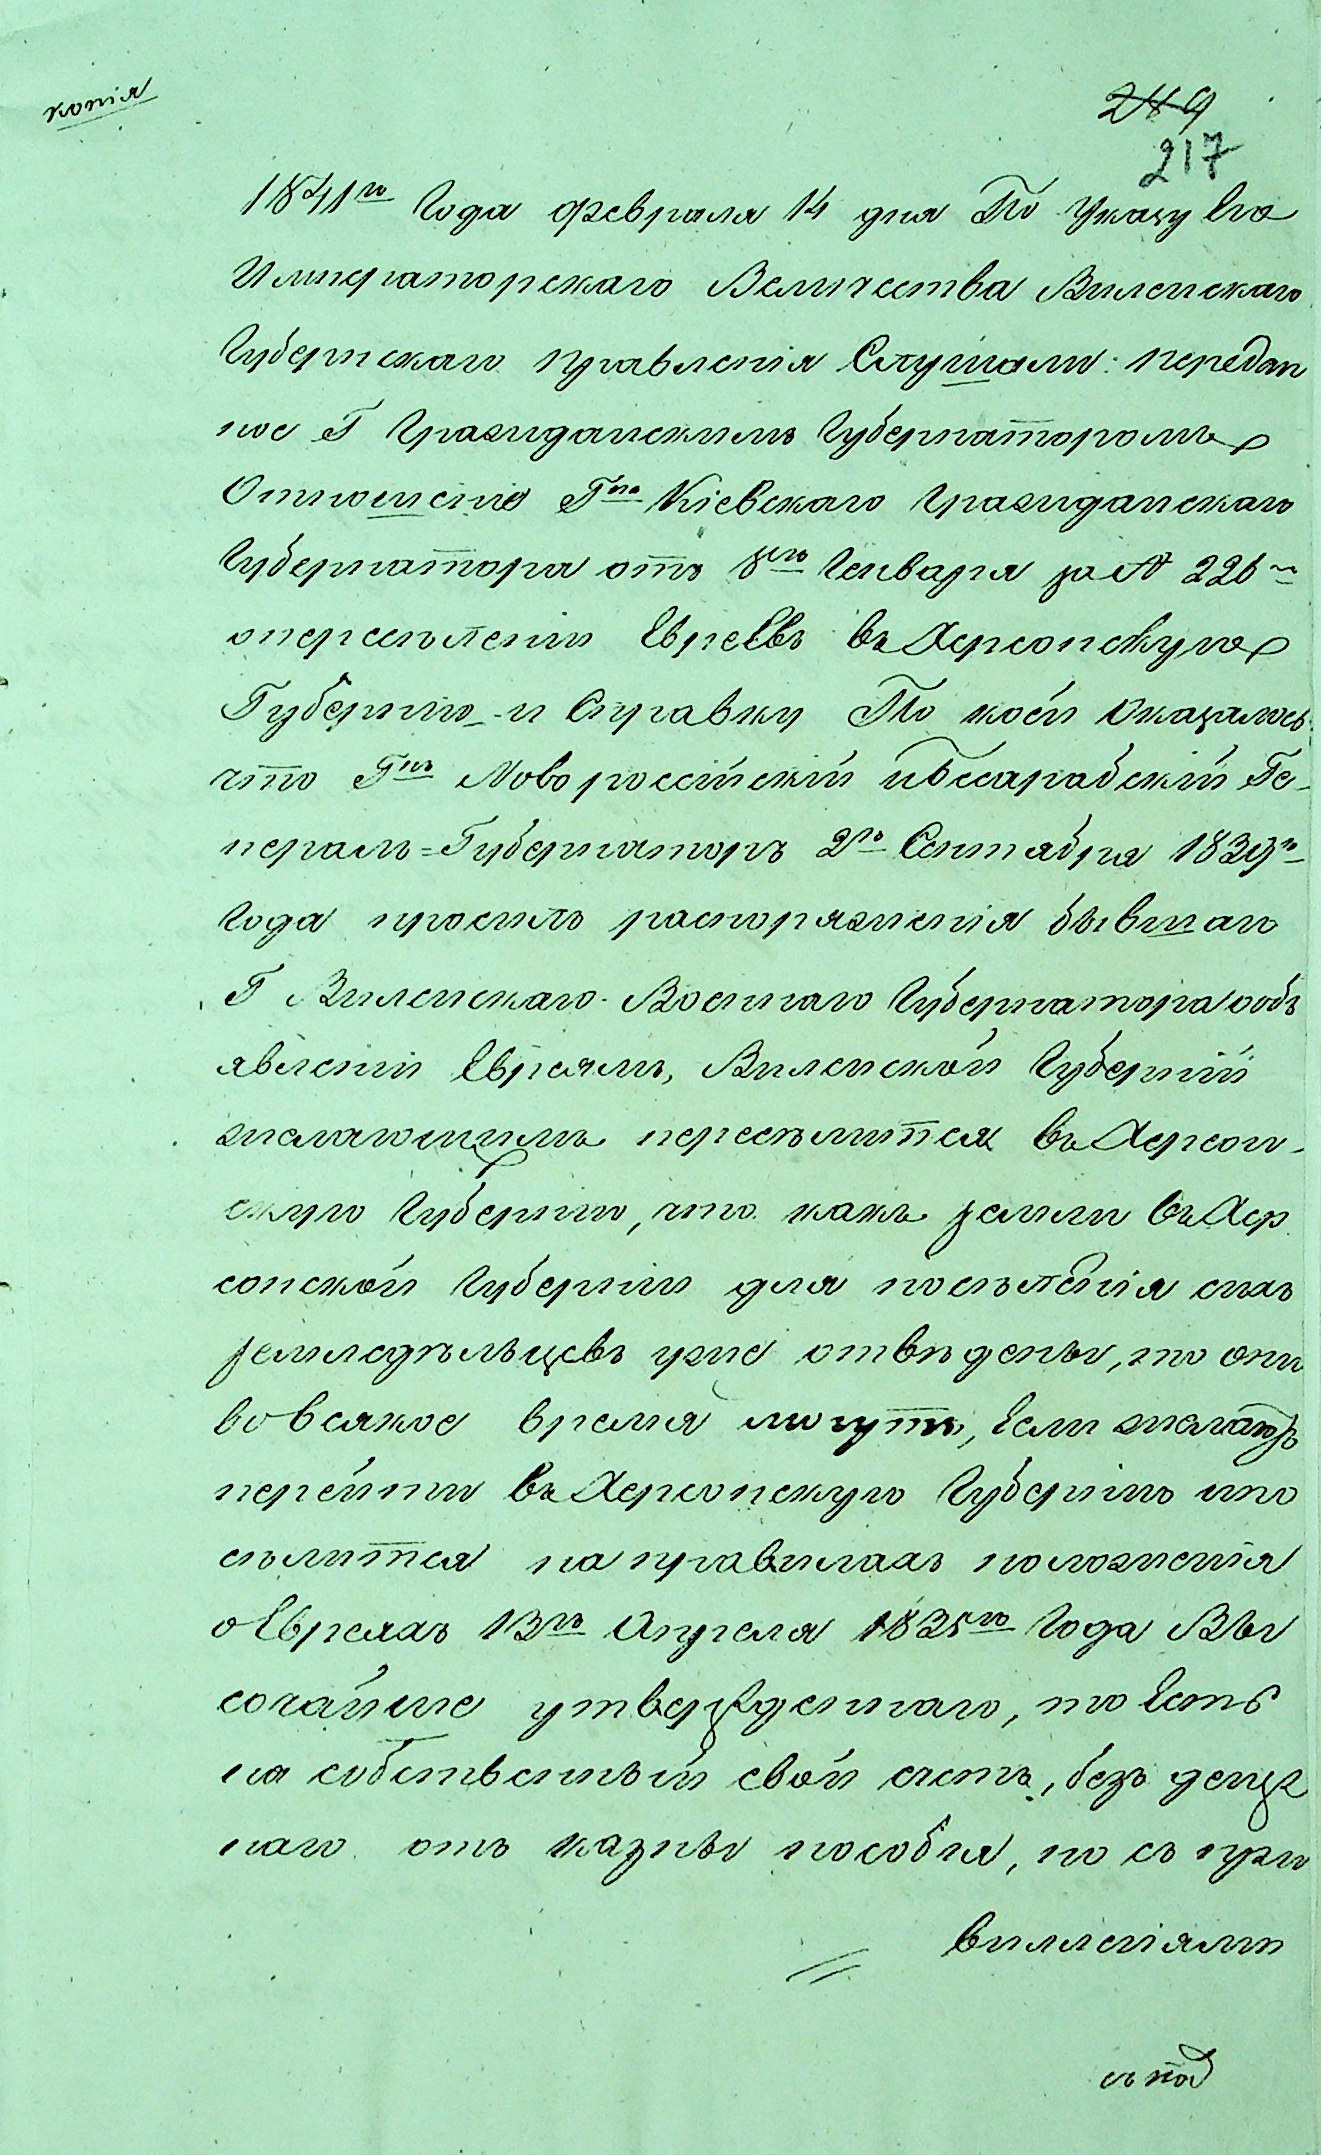 копія
249
217
1841го Года февраля 14 дня По Указу Его
Императорскаго Величества Виленскаго
Губернскаго правленія Слушали: передан
ное Г Гражданскимъ Губернаторомъ
Отношеніе Гна Кіевскаго Гражданскаго
Губернатора отъ 8го Генваря за № 226м
опереселеніи Евреевъ въ Херсонскую
Губернію и Справку По коей Оказалось
что Гнъ Новороссійскій иБессарабскій Ге-
нералъ=Губернаторъ 2го Сентября 1839го
Года просилъ распоряженія бывшаго
Г Виленскаго Военнаго Губернатора ообъ
явленіи Евреямъ, Виленской Губерніи
желающимъ переселится въ Херсон-
скую Губернію, что какъ земли въ Хер
сонской Губерніи для поселенія сихъ
земледѣльцевъ уже отведены, то они
вовсякое время могутъ, Если желаютъ
перейти въ Херсонскую Губернію ипо
селится на правилахъ положенія
оЕвреяхъ 13го Апреля 1835го Года Вы
сочайше утвержденнаго, то Есть
на собственный свой счетъ, безъ денеж
наго отъ казны пособія, но съ при
виллегіями
съ под